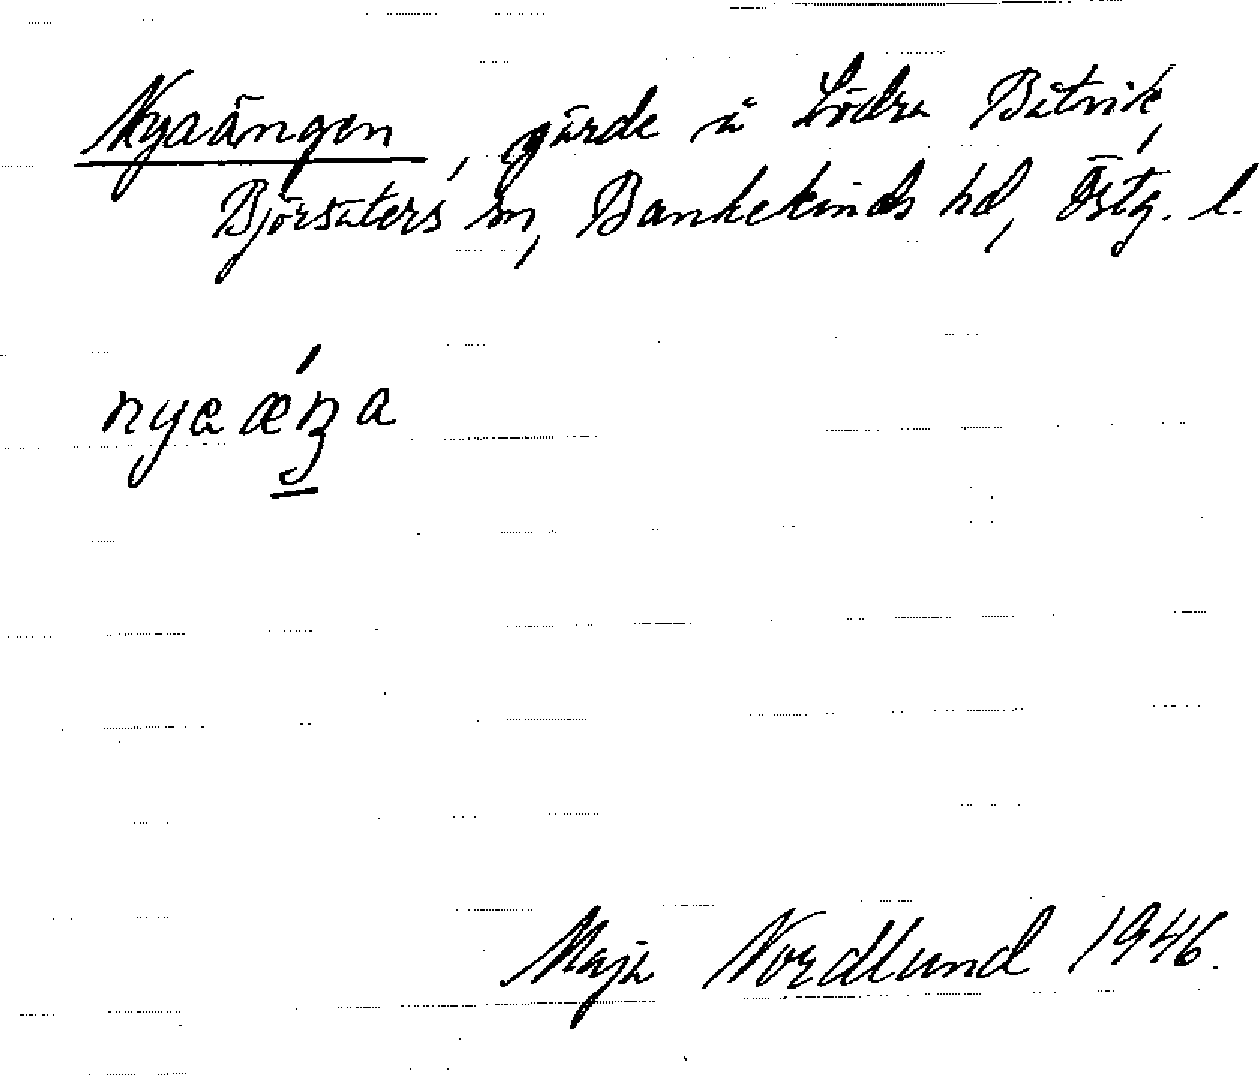 Nyaängen, gärde å Södra Båtvik,
Björsäters sn, Bankekinds hd, Östg. l.
nyaæŋa
Maja Nordlund 1946.